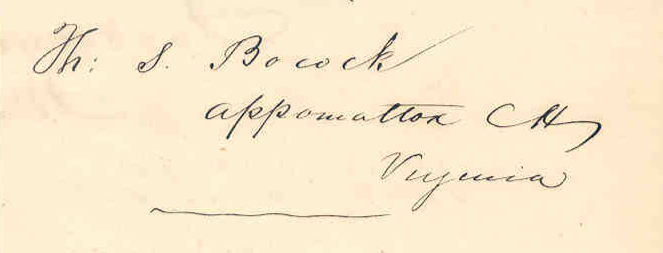 Th: S. Bocock
Appomattox CH
Virginia